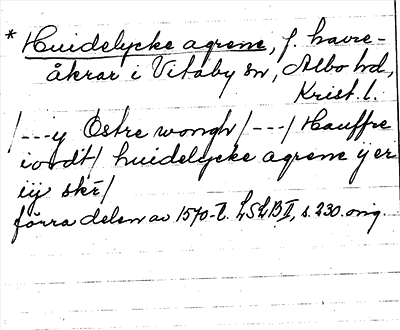 * Huidelycke agrene, f. havre-
åkrar i Vitaby sn, Albo hd,
Krist. l.
/---y Östre wongh/---/ Hauffre
iordt/ huidelycke agrene ÿ er
iÿ skr/
förra delen av 1570-t. LSLB II, s. 230. orig.